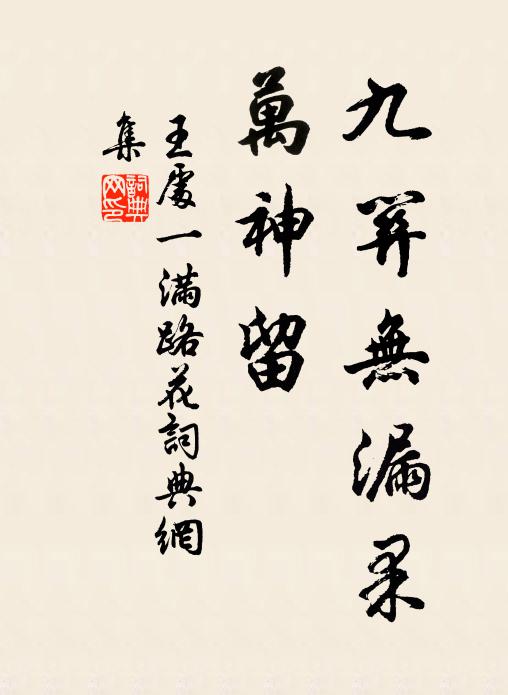 九筭無漏果
萬神留
王處一滿路花詞典網
集
詞典
网印